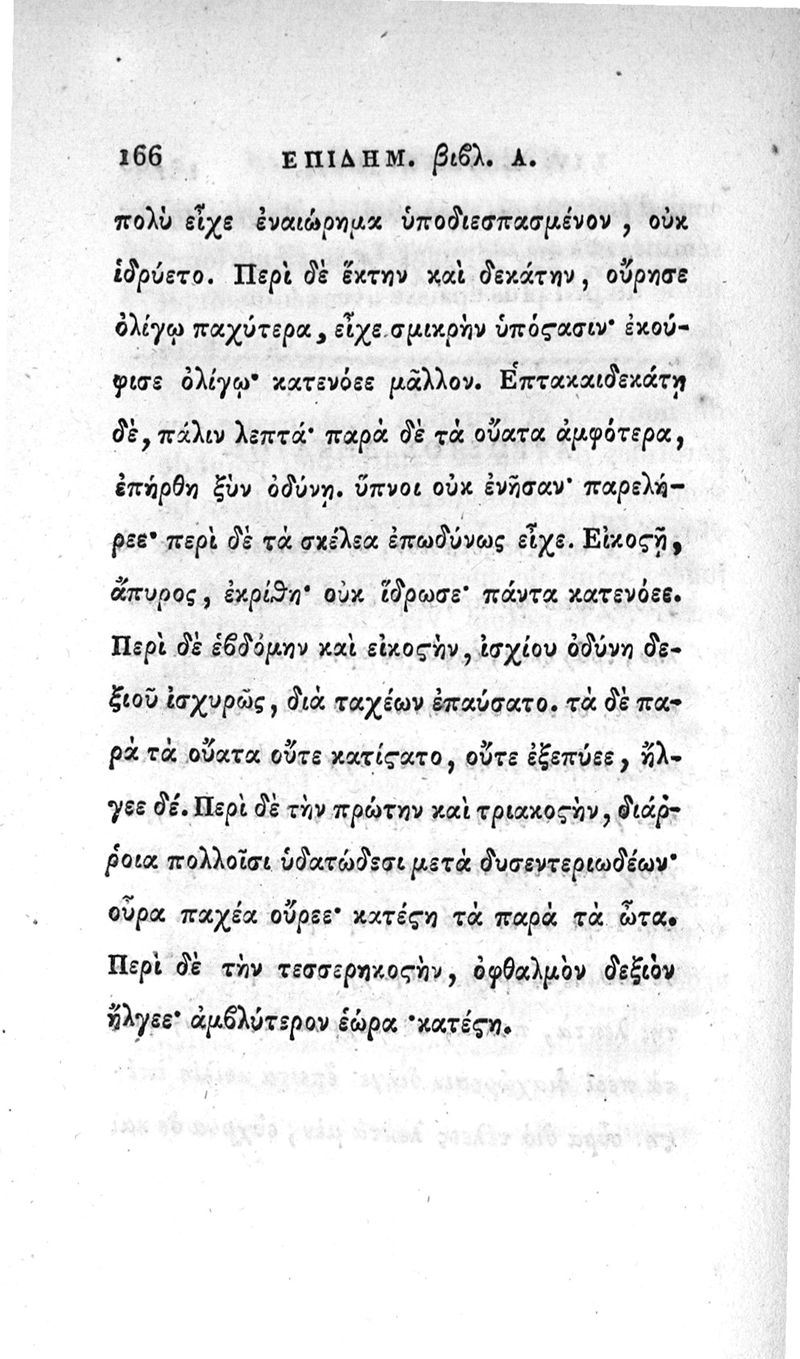 166 ΕΠΙΔΗΜ. βιβλ. Α.
πολὺ εἶχε ἐναιώρημα ὑποδιεσπασμένον, οὐκ
ἱδρύετο. Περὶ δὲ ἕκτην καὶ δεκάτην, οὔρησε
ὀλίγῳ παχύτερα, εἶχε σμικρὴν ὑπόϛασιν· ἐκού-
φισε ὀλίγῳ· κατενόεε μᾶλλον. Ἑπτακαιδεκάτῃ
δὲ, πάλιν λεπτά· παρὰ δὲ τὰ οὔατα ἀμφότερα,
ἐπήρθη ξὺν ὀδύνῃ. ὕπνοι οὐκ ἐνῆσαν· παρελή-
ρεε· περὶ δὲ τὰ σκέλεα ἐπωδύνως εἶχε. Εἰκοϛῇ,
ἄπυρος, ἐκρίθη· οὐκ ἵδρωσε· πάντα κατενόεε.
Περὶ δὲ ἑβδόμην καὶ εἰκοϛὴν, ἰσχίου ὀδύνη δε-
ξιοῦ ἰσχυρῶς, διὰ ταχέων ἐπαύσατο. τὰ δὲ πα-
ρὰ τὰ οὔατα οὔτε κατίϛατο, οὔτε ἐξεπύεε, ἤλ-
γεε δέ. Περὶ δὲ τὴν πρώτην καὶ τριακοϛὴν, διάῤ-
ῥοια πολλοῖσι ὑδατώδεσι μετὰ δυσεντεριωδέων·
οὖρα παχέα οὔρεε· κατέϛη τὰ παρὰ τὰ ὦτα.
Περὶ δὲ τὴν τεσσερηκοϛὴν, ὀφθαλμὸν δεξιὸν
ἤλγεε· ἀμβλύτερον ἑώρα ·κατέϛη.